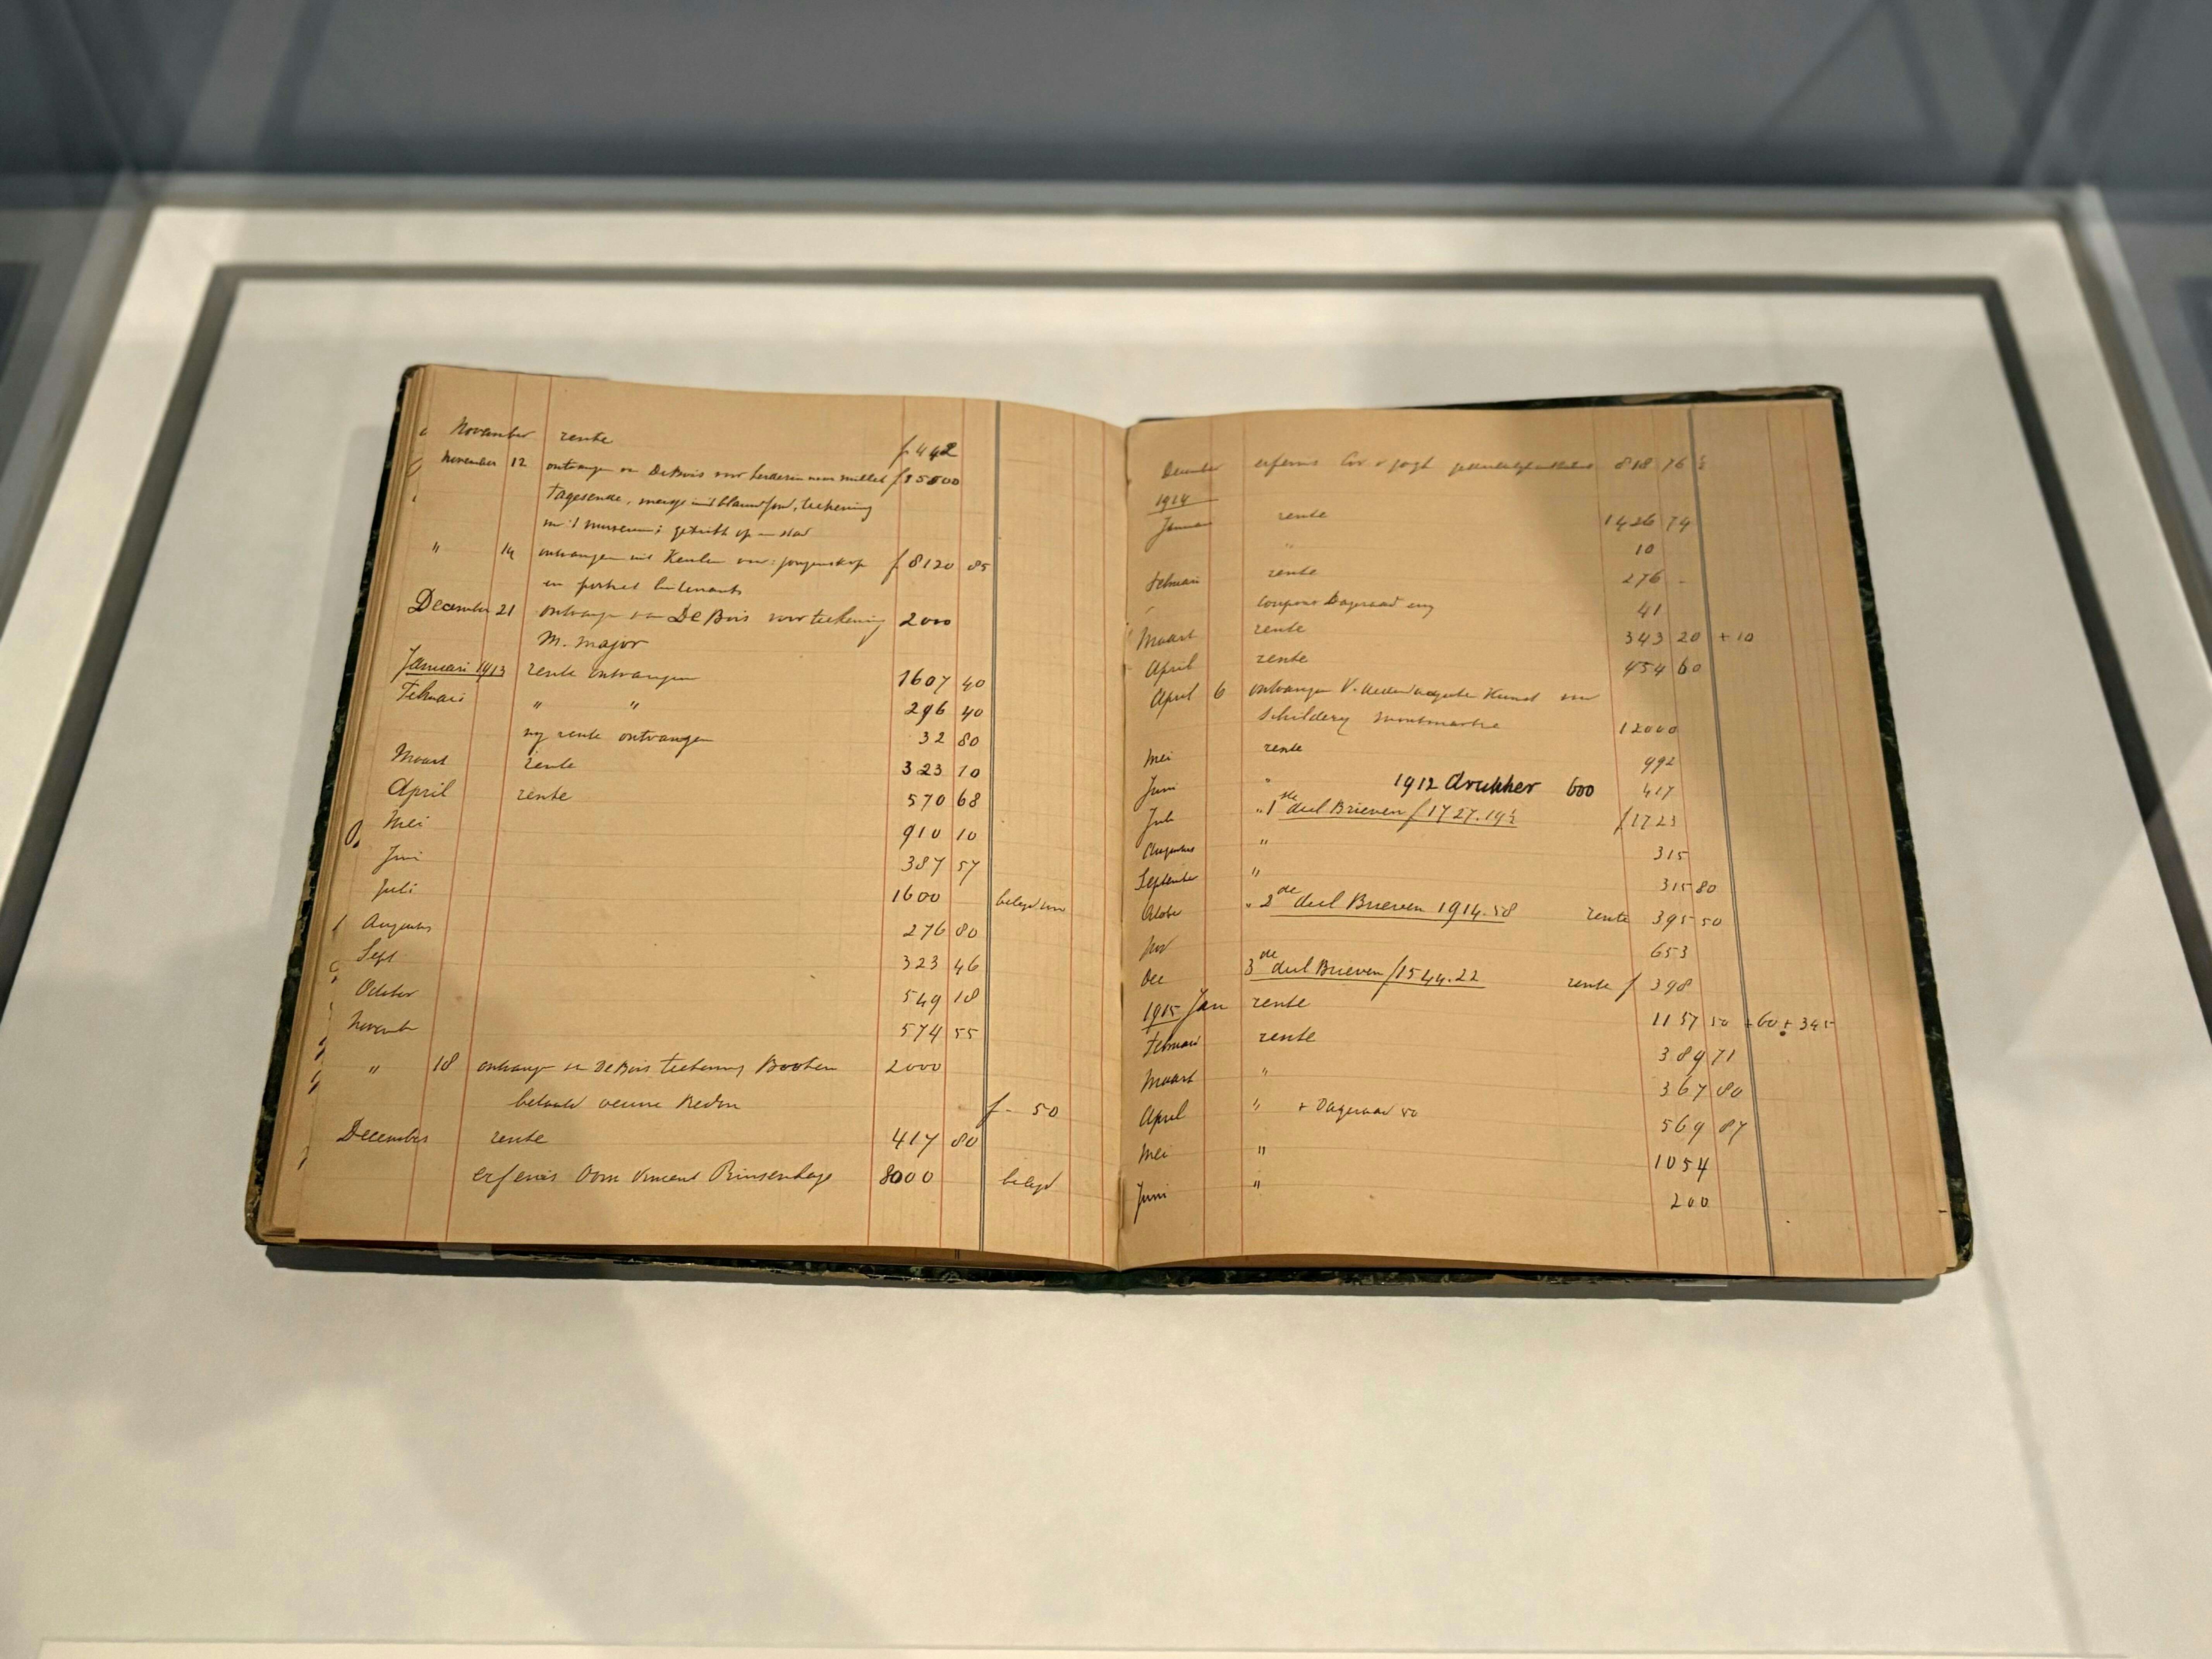 November rente f 442
November 12 ontvangen van De Bois voor herderin naar Millet f 15000
Tagesende, meisje met blauw fond, teekening
in 't museum
" 14 ontvangen uit Keulen voor: jongenskop f 8120 85
en portret luitenants
December 21 ontvangen van De Bois voor teekening 2000
M. major
Januari 1913 rente ontvangen 1607 40
Februari " " 296 40
rente ontvangen 32 80
Maart rente 323 10
April rente 570 68
Mei 910 10
Juni 387 57
Juli 1600 belegd
Augustus 276 80
Sept 323 46
October 549 18
November 574 55
" 18 ontvangen van De Bois teekening Booten 2000
betaald veuve Redon f - 50
December rente 417 80
erfenis Oom Vincent Prinsenhage 8000 belegd
December erfenis Cor v gogh 818 76
1914
Januari rente 1426 74
" 10
Februari rente 276 -
coupons Dageraad 41
Maart rente 343 20 + 10
April rente 454 60
April 6 ontvangen V. Kunst
schilderij montmartre 12000
Mei rente 992
Juni " 1912 drukker 600 417
Juli " 1ste deel Brieven f 1727.19½ f 1723
Augustus " 315
September " 315 80
Octobe " 2de deel Brieven 1914.58 rente 395 50
Nov 653
Dec 3de deel Brieven f 1544.22 rente f 398
1915 Jan rente 1157 50 + 60 + 345
Februari rente 389 71
Maart " 367 80
April " + Dageraad 50 569 87
Mei " 1054
Juni " 200